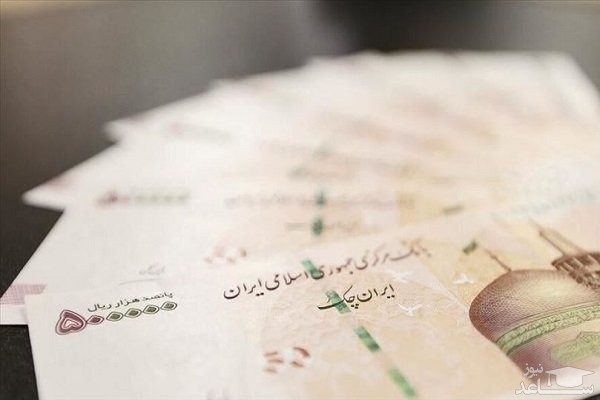 بانک مرکزی جمهوری اسلامی ایران
ایران چک
پانصد هزار ریال
۵۰۰۰۰۰
ساعد نیوز